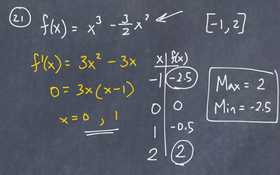 21 f(x) = x³ - 3/2 x² [-1, 2]
f'(x) = 3x² - 3x
0 = 3x(x-1)
x = 0, 1
x f(x)
-1 -2.5
0 0
1 -0.5
2 2
Max = 2
Min = -2.5